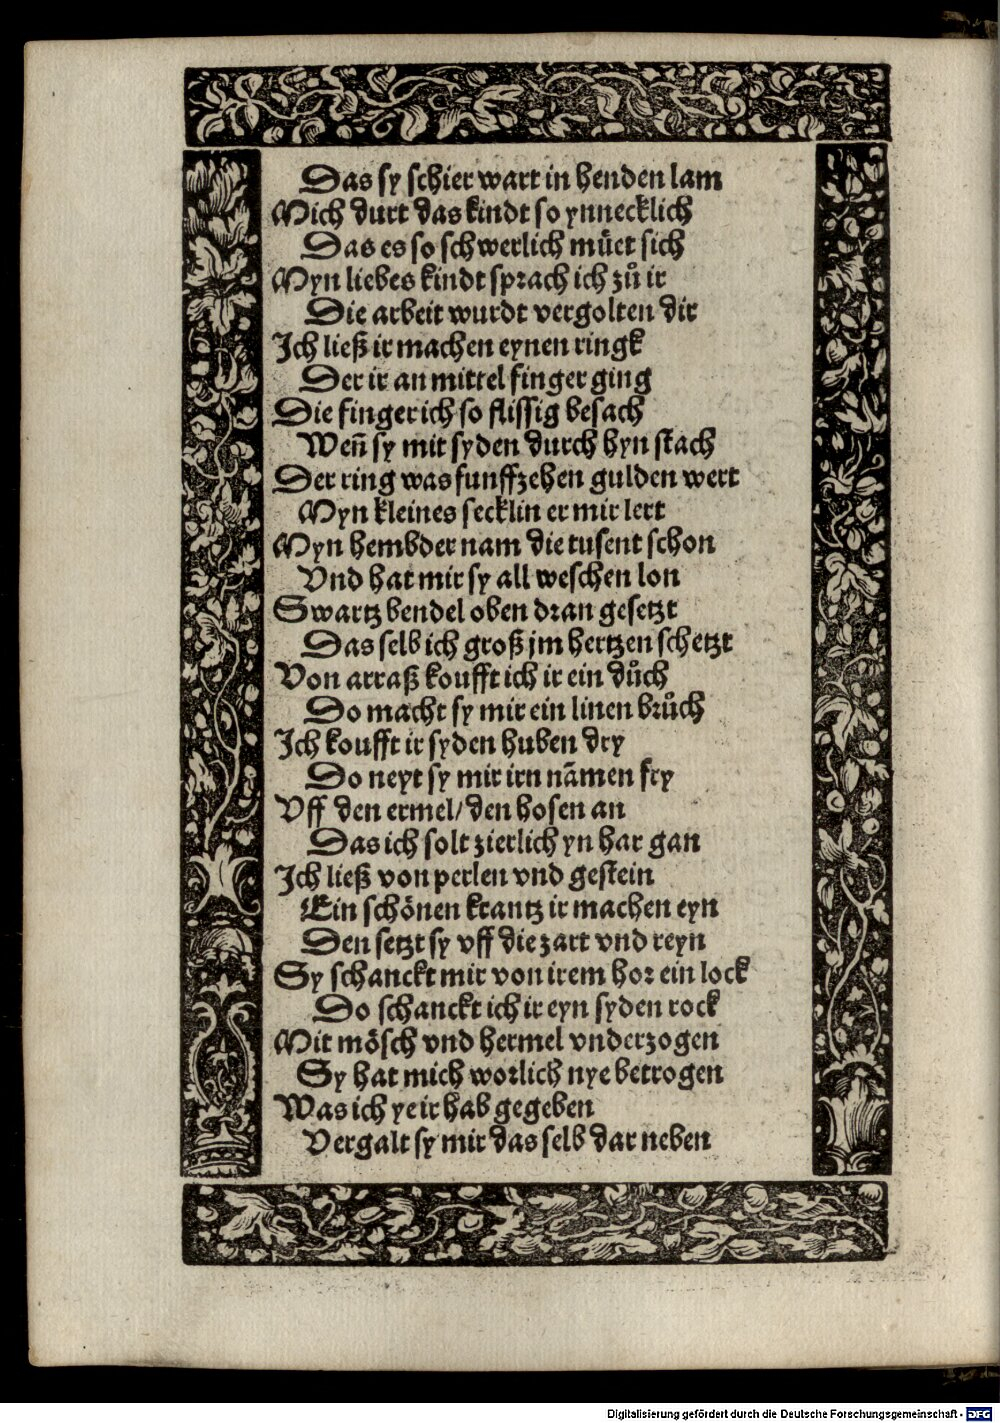 Das sy schier wart in henden lam
Mich durt das kindt so ynnecklich
Das es so schwerlich müet sich
Myn liebes kindt sprach ich zů ir
Die arbeit wurdt vergolten dir
Ich ließ ir machen eynen ringk
Der ir an mittel finger ging
Die finger ich so flissig besach
Weñ sy mit syden durch hyn stach
Der ring was funffzehen gulden wert
Myn kleines secklin er mir lert
Myn hembder nam die tusent schon
Vnd hat mir sy all weschen lon
Swartz bendel oben dran gesetzt
Das selb ich groß jm hertzen schetzt
Von arraß koufft ich ir ein důch
Do macht sy mir ein linen brůch
Ich koufft ir syden huben dry
Do neyt sy mir irn nãmen fry
Vff den ermel/ den hosen an
Das ich solt zierlich yn har gan
Ich ließ von perlen vnd gestein
Ein schönen krantz ir machen eyn
Den setzt sy vff die zart vnd reyn
Sy schanckt mir von irem hor ein lock
Do schanckt ich ir eyn syden rock
Mit mösch vnd hermel vnderzogen
Sy hat mich worlich nye betrogen
Was ich ye ir hab gegeben
Vergalt sy mir das selb dar neben
Digitalisierung gefördert durch die Deutsche Forschungsgemeinschaft - DFG